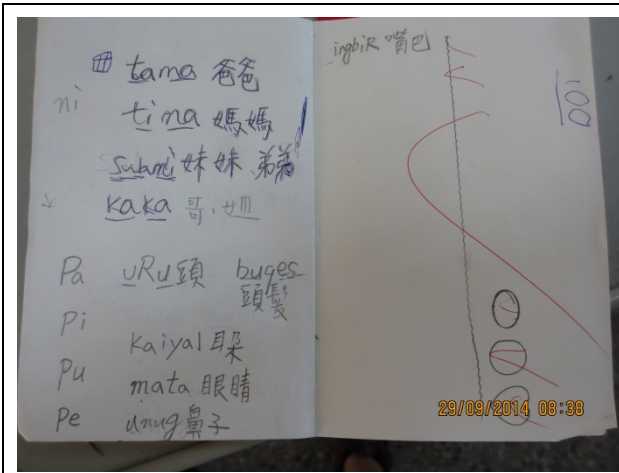 田 tama 爸爸
ni
tina 媽媽
subani 妹妹 弟弟
kaka 哥.姐
Pa uRu頭 buges
頭髮
Pi
kaiyal 耳朵
Pu
mata 眼睛
Pe unug 鼻子
ingbiR 嘴巴
100
29/09/2014 08:38